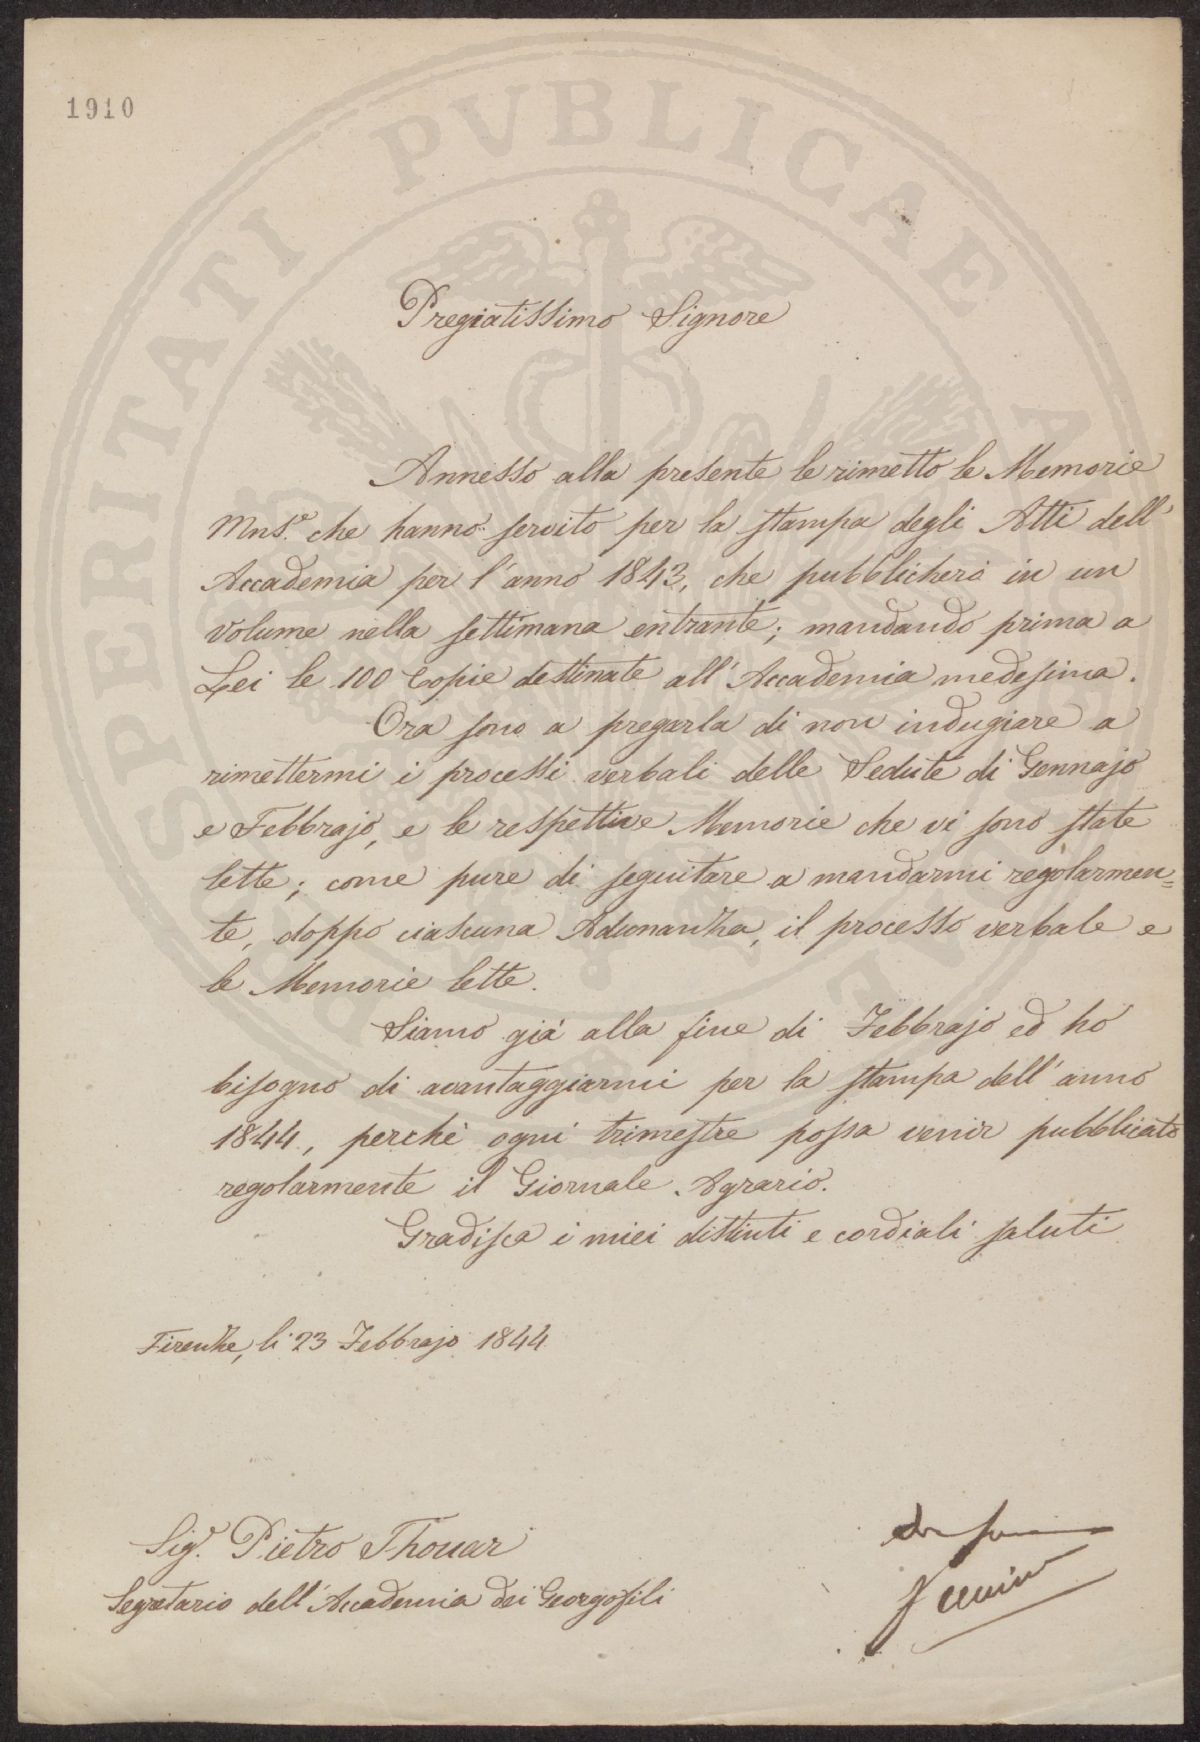 1910
PROSPERITATI PUBLICAE
Pregiatissimo Signore
Annesso alla presente le rimetto le Memorie
Mns.e che hanno servito per la stampa degli Atti dell'
Accademia per l'anno 1843, che pubblicherò in un
volume nella settimana entrante; mandando prima a
Lei le 100 Copie destinate all'Accademia medesima.
Ora sono a pregarla di non indugiare a
rimettermi i processi verbali delle Sedute di Gennajo
e Febbrajo, e le respettive Memorie che vi sono state
lette; come pure di seguitare a mandarmi regolarmen=
te, doppo ciascuna Adunanza, il processo verbale e
le Memorie lette.
Siamo già alla fine di Febbrajo ed ho
bisogno di avantaggiarmi per la stampa dell'anno
1844, perchè ogni trimestre possa venir pubblicato
regolarmente il Giornale Agrario.
Gradisca i miei distinti e cordiali saluti
Firenze, li 23 Febbrajo 1844
Sig.r Pietro Thouar
Segretario dell'Accademia dei Georgofili